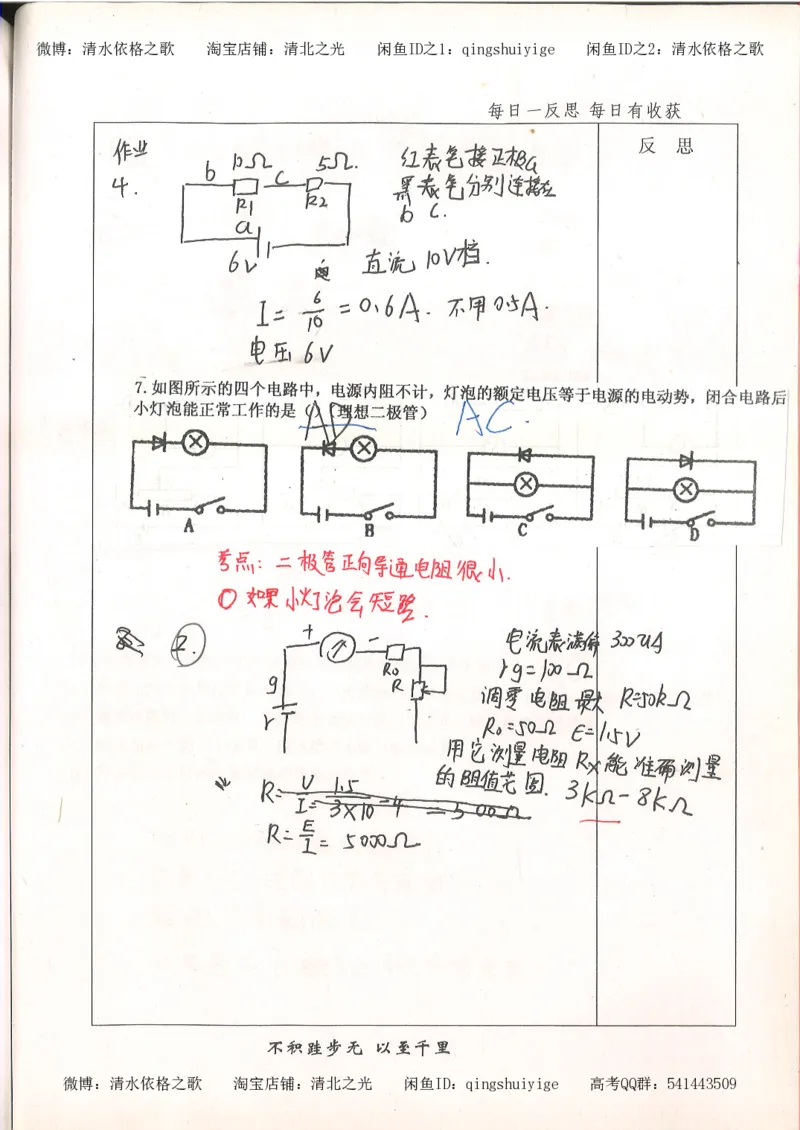 微博：清水依格之歌 淘宝店铺：清北之光 闲鱼ID之1：qingshuiyige 闲鱼ID之2：清水依格之歌
每日一反思 每日有收获
反 思
作业
4.
b 10Ω C 5Ω.
R1 R2
a
6V
红表笔接正极a
黑表笔分别连接在
b C.
直流10V档.
I= 6/10 =0.6A. 不用0.5A.
电压6V
7.如图所示的四个电路中，电源内阻不计，灯泡的额定电压等于电源的电动势，闭合电路后
小灯泡能正常工作的是（）（理想二极管）
AC.
A B C D
考点：二极管正向导通电阻很小.
○如果小灯泡会短路.
2.
+ −
R0
R
g
r
电流表满偏300uA
rg=100Ω
调零电阻最大 R=50kΩ
R0=50Ω E=1.5V
用它测量电阻Rx能准确测量
的阻值范围. 3kΩ-8kΩ
R= U/I= 1.5/3×10-4 =500Ω
R= E/I = 5000Ω
不积跬步无 以至千里
微博：清水依格之歌 淘宝店铺：清北之光 闲鱼ID：qingshuiyige 高考QQ群：541443509